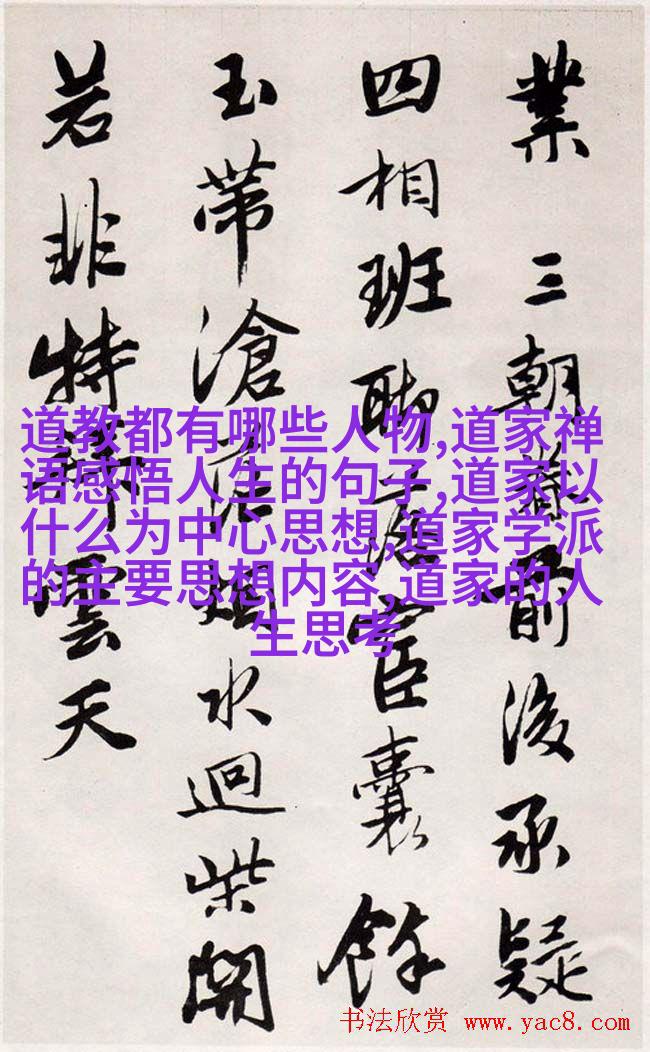 業三朝前後承疑
四相班聯宦囊餘
玉帶滄水迴柴開
若非特雲天
道教都有哪些人物,道家禅
语感悟人生的句子,道家以
什么为中心思想,道家学派
的主要思想内容,道家的人
生思考
书法欣赏 www.yac8.com